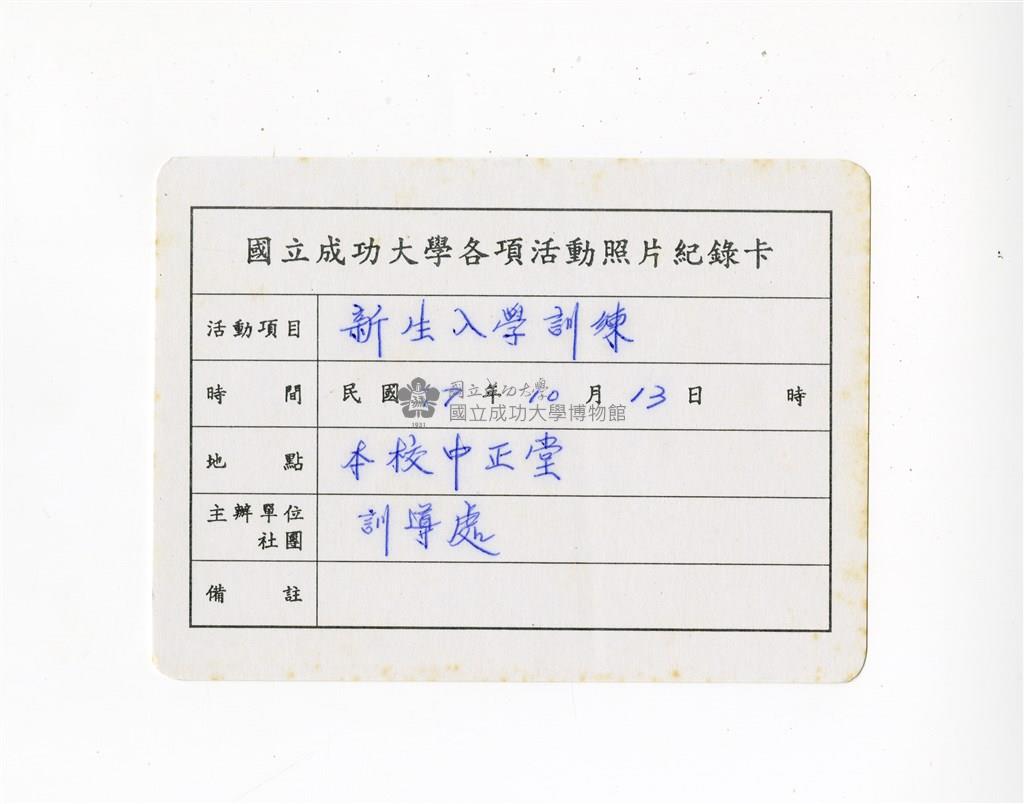 國立成功大學各項活動照片紀錄卡
活動項目 新生入學訓練
時間 民國 年 10 月 13 日 時
國立成功大學
國立成功大學博物館
1931
地點 本校中正堂
主辦單位社團 訓導處
備註